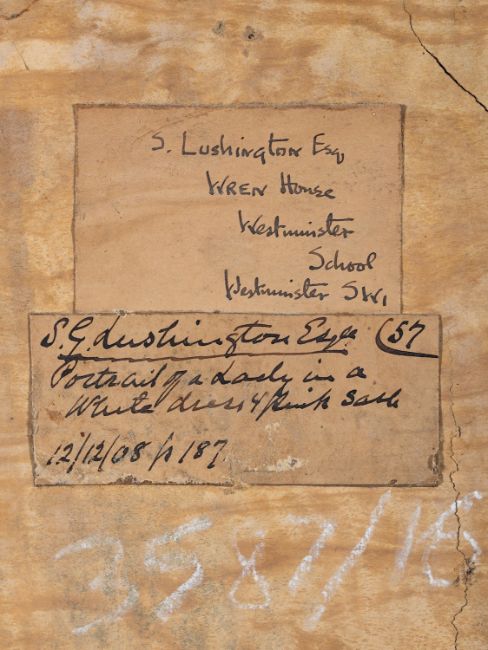 S. Lushington Esq
Wren House
Westminster
School
Westminster SW1
S.G. Lushington Esqre (57
Portrait of a Lady in a
White dress & pink Sash
12/12/08 p 187
3587/16